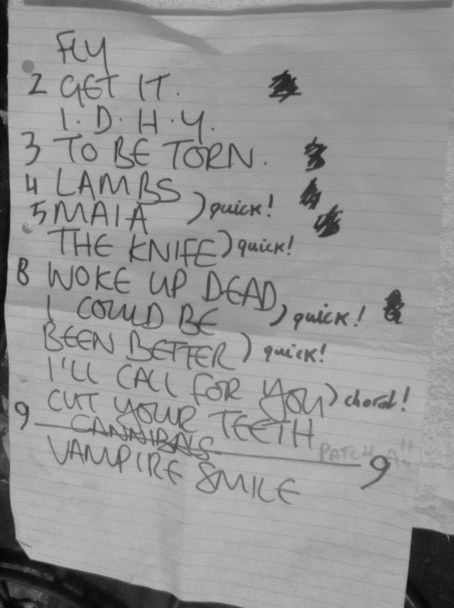 FLY
2 GET IT.
I.D.H.Y.
3 TO BE TORN.
4 LAMBS
5 MAIA ) quick!
THE KNIFE ) quick!
8 WOKE UP DEAD
I COULD BE ) quick!
BEEN BETTER ) quick!
I'LL CALL FOR YOU ) chord!
CUT YOUR TEETH
9 CANNIBALS PATCH A" 9
VAMPIRE SMILE